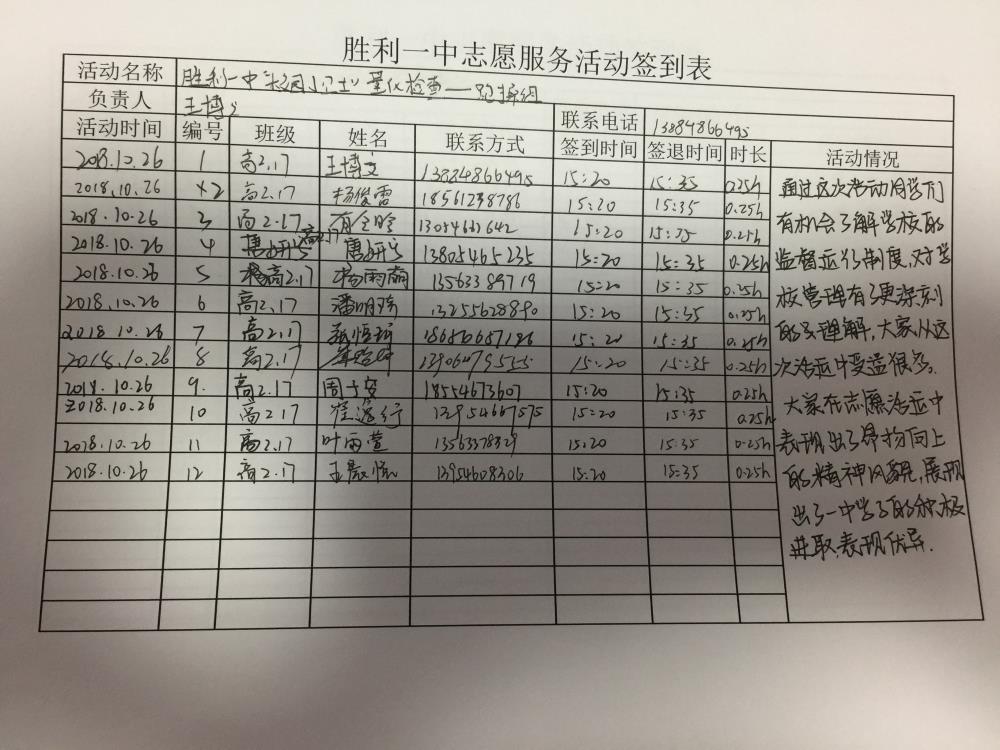 胜利一中志愿服务活动签到表
活动名称 胜利一中"校园小卫士"量化检查—跑操组
负责人 王博文 联系电话 13884866495
活动时间 编号 班级 姓名 联系方式 签到时间 签退时间 时长 活动情况
2018.10.26 1 高2.17 王博文 13884866495 15:20 15:35 0.25h
2018.10.26 2 高2.17 杨俊雷 18561238786 15:20 15:35 0.25h
2018.10.26 3 高2.17 13054661642 15:20 15:35 0.25h
2018.10.26 4 高2.17 13805465235 15:20 15:35 0.25h
2018.10.26 5 高2.17 杨雨 13563389719 15:20 15:35 0.25h
2018.10.26 6 高2.17 潘明 13255628890 15:20 15:35 0.25h
2018.10.26 7 高2.17 15:20 15:35 0.25h
2018.10.26 8 高2.17 15:20 15:35 0.25h
2018.10.26 9. 高2.17 周 18554673607 15:20 15:35 0.25h
2018.10.26 10 高2.17 崔 13954667575 15:20 15:35 0.25h
2018.10.26 11 高2.17 叶雨萱 15:20 15:35 0.25h
2018.10.26 12 高2.17 王晨悦 13954608306 15:20 15:35 0.25h
通过这次活动同学们
有机会了解学校的
监督运行制度,对学
校管理有了更深刻
的理解,大家从这
次活动中受益很多。
大家在志愿活动中
表现出了昂扬向上
的精神风貌,展现
出了一中学子的积极
进取,表现优异.